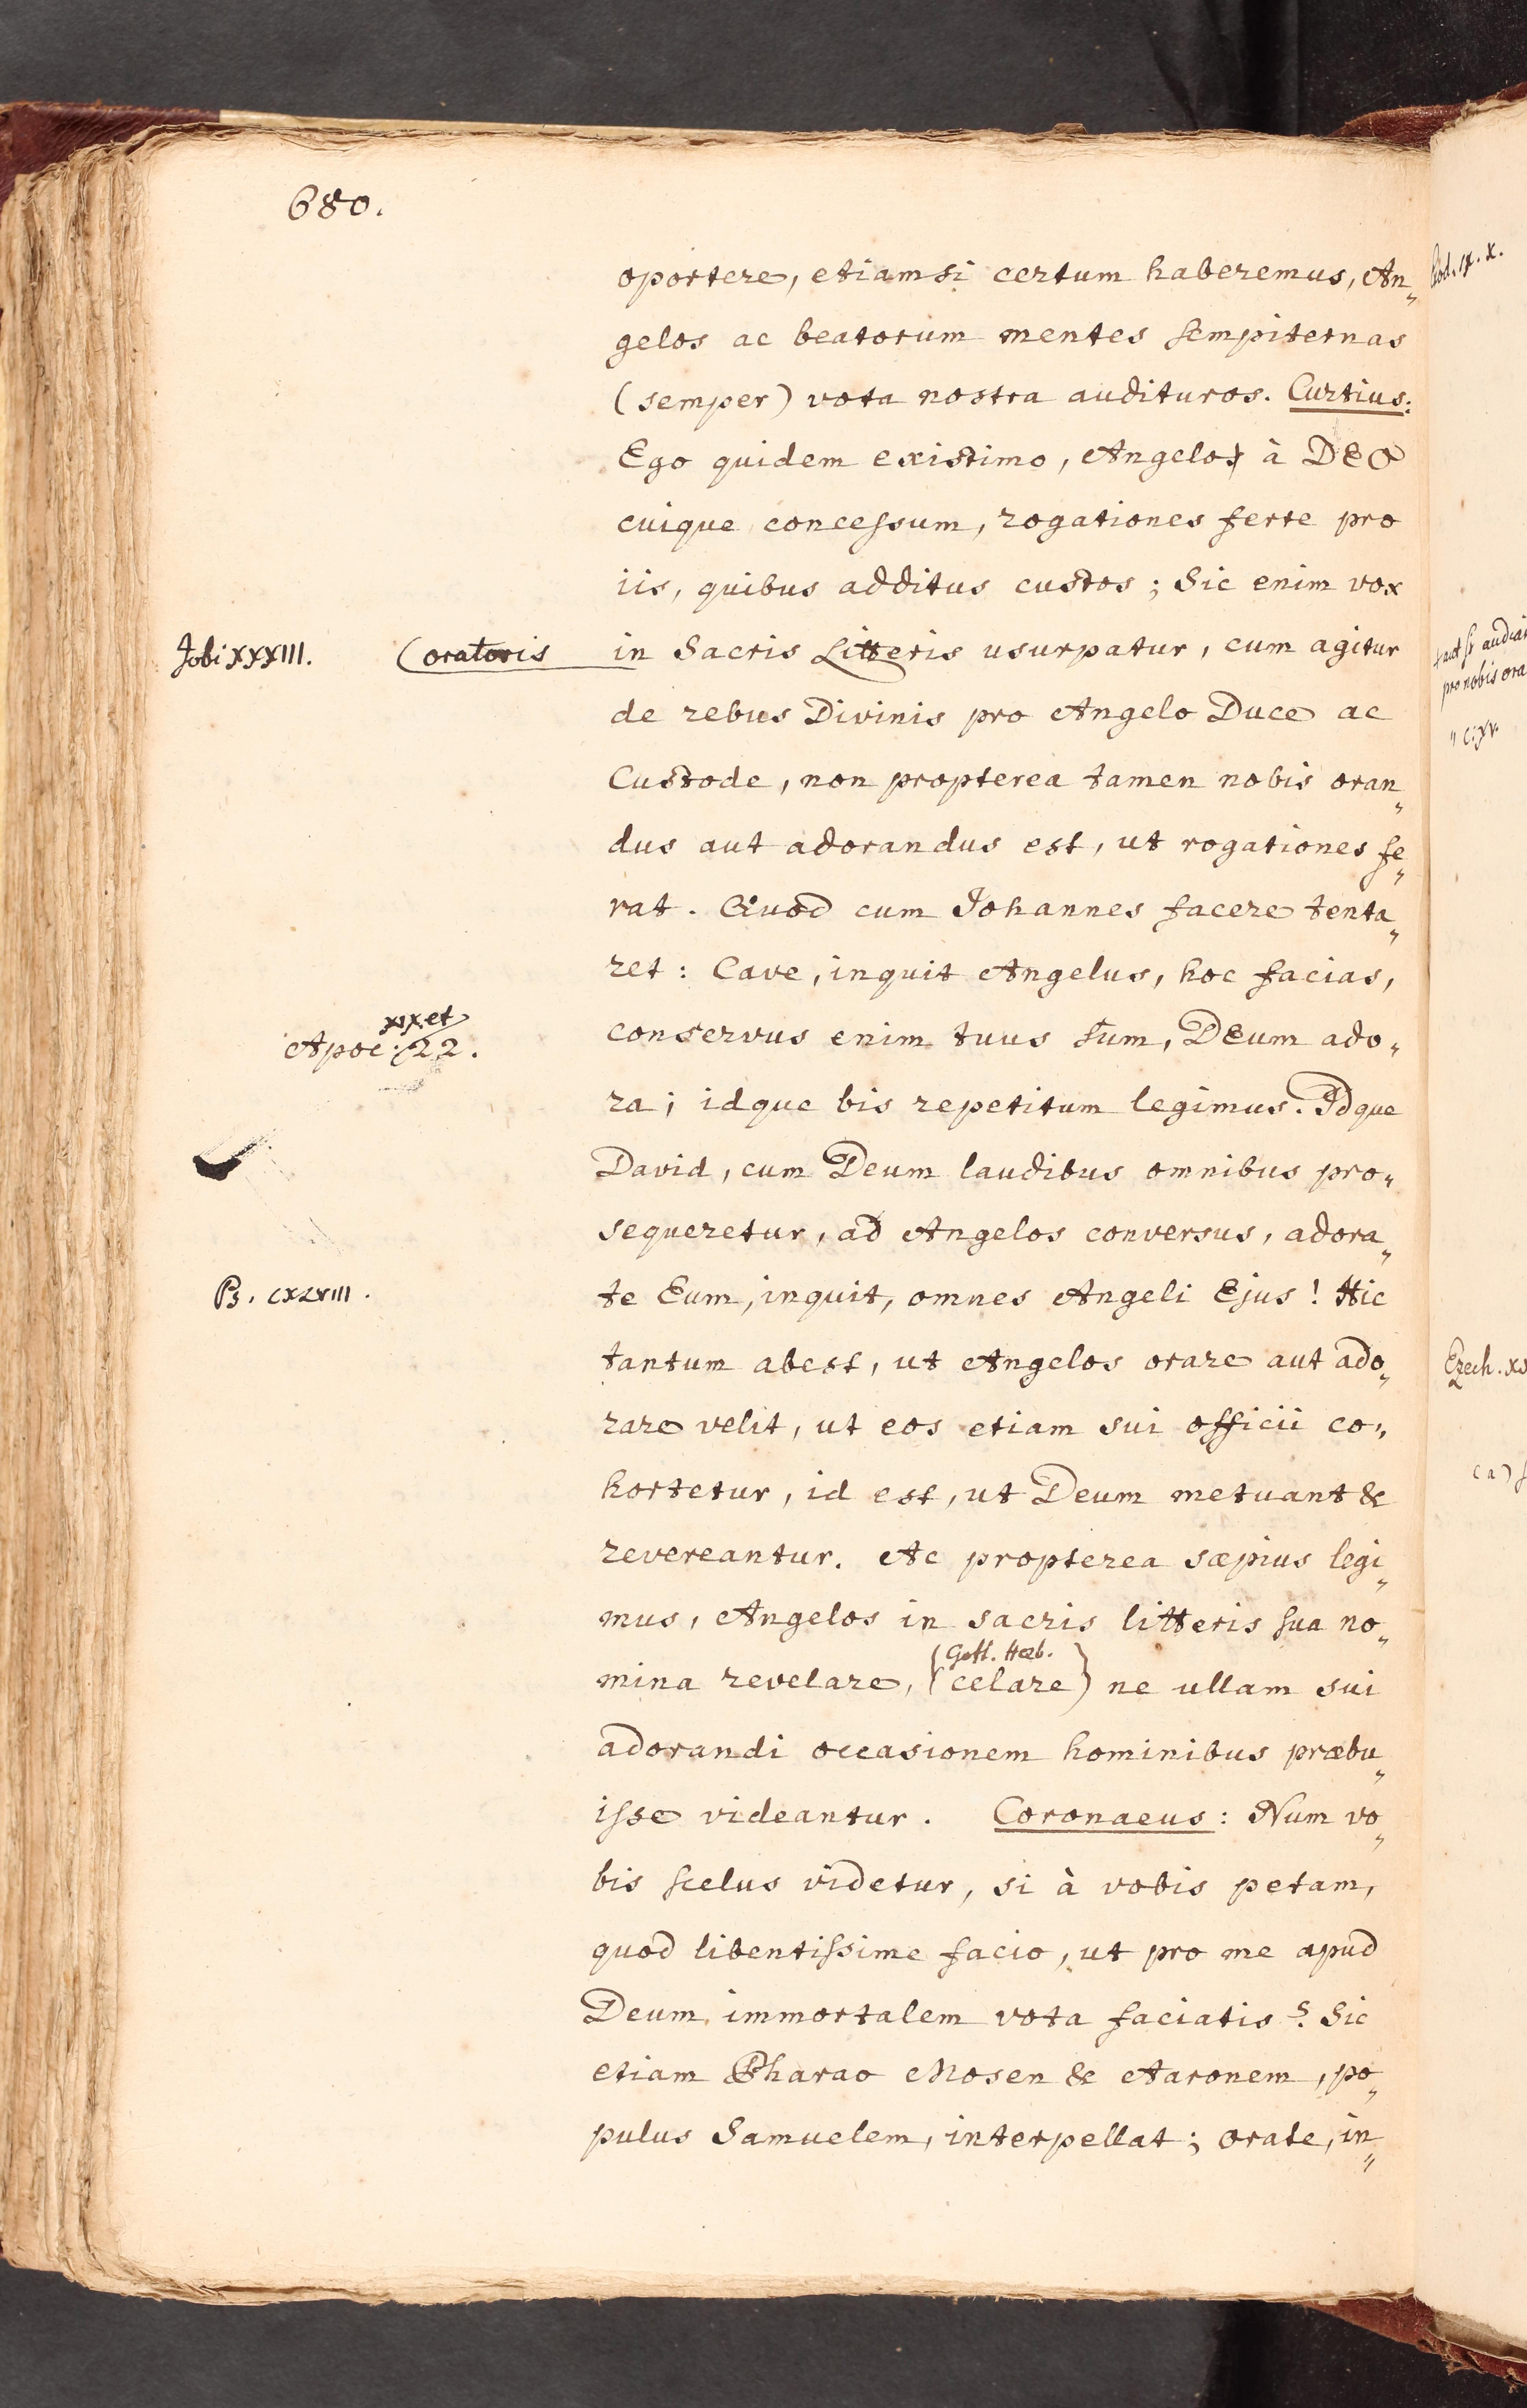 680.
oportere, etiamsi certum haberemus, An„
gelos ac beatorum mentes sempiternas
(semper) vota nostra audituros. Curtius:
Ego quidem existimo, Angelos à DEO
cuique concessum, rogationes ferre pro
iis, quibus additus custos; Sic enim vox
Jobi XXXIII. (oratoris in Sacris Litteris usurpatur, cum agitur
de rebus Divinis pro Angelo Duce ac
Custode, non propterea tamen nobis oran„
dus aut adorandus est, ut rogationes fe„
rat. Quod cum Johannes facere tenta„
ret: Cave, inquit Angelus, hoc facias,
xix et
Apoc. 22. conservus enim tuus sum, DEum ado„
ra; idque bis repetitum legimus. Idque
David, cum Deum laudibus omnibus pro„
sequeretur, ad Angelos conversus, adora„
Ps. CXLVIII. te Eum, inquit, omnes Angeli Ejus! Hic
tantum abest, ut Angelos orare aut ado„
rare velit, ut eos etiam sui officii co„
hortetur, id est, ut Deum metuant &
revereantur. Ac propterea sæpius legi„
mus, Angelos in sacris litteris sua no„
Gotl. Herb.
mina revelare, (celare) ne ullam sui
adorandi occasionem hominibus præbu„
isse videantur. Coronaeus: Num vo„
bis scelus videtur, si à vobis petam,
quod libentissime facio, ut pro me apud
Deum immortalem vota faciatis? Sic
etiam Pharao Mosen & Aaronem, po„
pulus Samuelem, interpellat; orate, in„
pro nobis ora
Ezech.